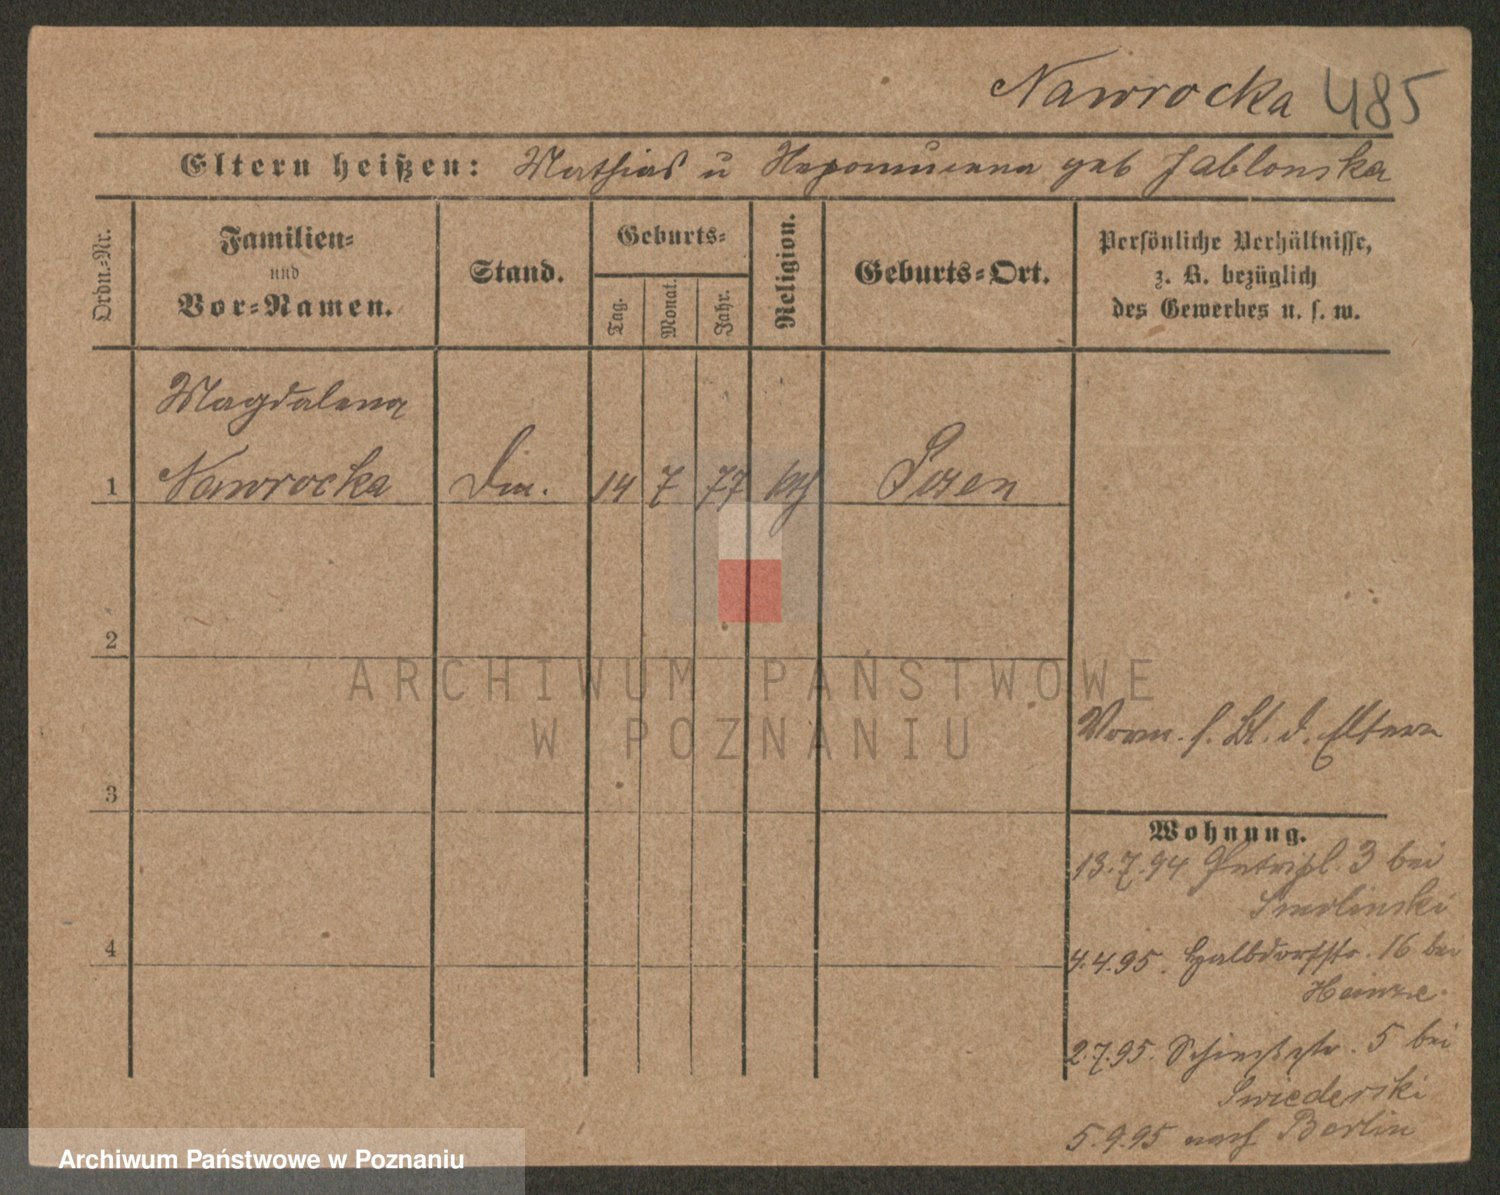 Nawrocka 485
Eltern heißen: Mathias u Nepomucena geb Jablonska
Ordn.-Nr.
Familien-
und
Vor-Namen.
Stand.
Geburts-
Tag.
Monat.
Jahr.
Religion.
Geburts-Ort.
Persönliche Verhältnisse,
z. B. bezüglich
des Gewerbes u. s. w.
Magdalena
1 Nawrocka Din. 14 7 77 kth Posen
2
3
4
Vorm. s. Bl. d. Eltern
Wohnung.
13.7.94 Petripl. 3 bei
Smolinski
4.4.95. Halbdorfstr. 16 bei
Heinze.
2.7.95. 5 bei
Swiederski
5.9.95 nach Berlin
ARCHIWUM PAŃSTWOWE
W POZNANIU
Archiwum Państwowe w Poznaniu